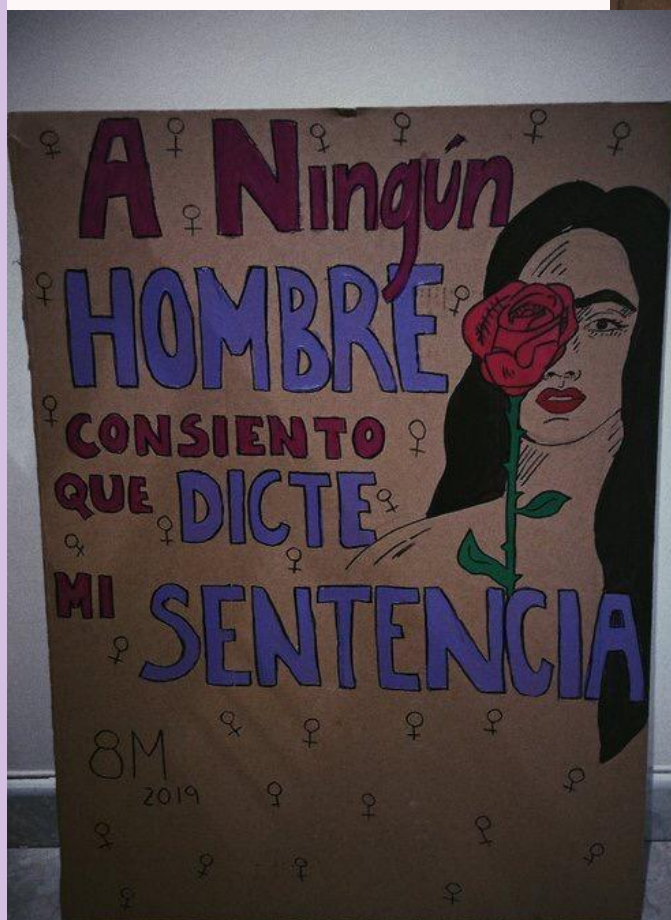 A Ningún
HOMBRE
CONSIENTO
QUE DICTE
MI SENTENCIA
8M
2019